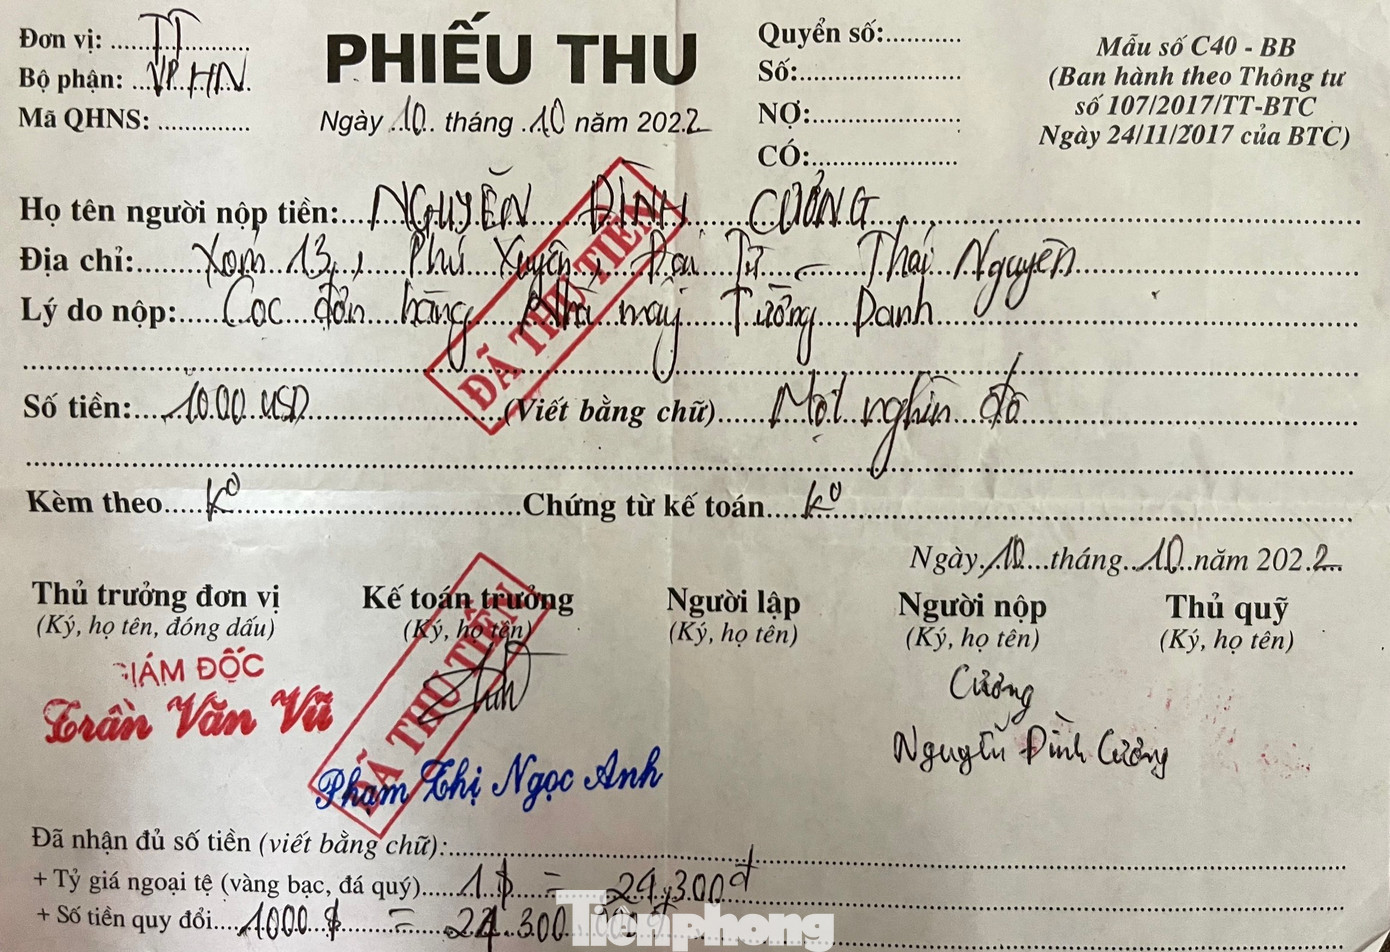 Đơn vị: TT
Bộ phận: VP.HN
Mã QHNS:
PHIẾU THU
Ngày 10 tháng 10 năm 2022
Quyển số:
Số:
NỢ:
CÓ:
Mẫu số C40 - BB
(Ban hành theo Thông tư
số 107/2017/TT-BTC
Ngày 24/11/2017 của BTC)
Họ tên người nộp tiền: NGUYỄN ĐÌNH CƯỜNG
Địa chỉ: Xóm 13, Phú Xuyên, Đại Từ - Thái Nguyên
Lý do nộp: Cọc đơn hàng Nhà máy Tường Danh
ĐÃ THU TIỀN
Số tiền: 1000 USD (Viết bằng chữ) Một nghìn đô
Kèm theo Ko Chứng từ kế toán Ko
Ngày 10 tháng 10 năm 2022
Thủ trưởng đơn vị Kế toán trưởng Người lập Người nộp Thủ quỹ
(Ký, họ tên, đóng dấu) (Ký, họ tên) (Ký, họ tên) (Ký, họ tên) (Ký, họ tên)
GIÁM ĐỐC
Trần Văn Vũ
ĐÃ THU TIỀN
Phạm Thị Ngọc Anh
Cường
Nguyễn Đình Cường
Đã nhận đủ số tiền (viết bằng chữ):
+ Tỷ giá ngoại tệ (vàng bạc, đá quý) 1$ = 24,300đ
+ Số tiền quy đổi 1000 $ = 24.300 000đ
Tiênphong